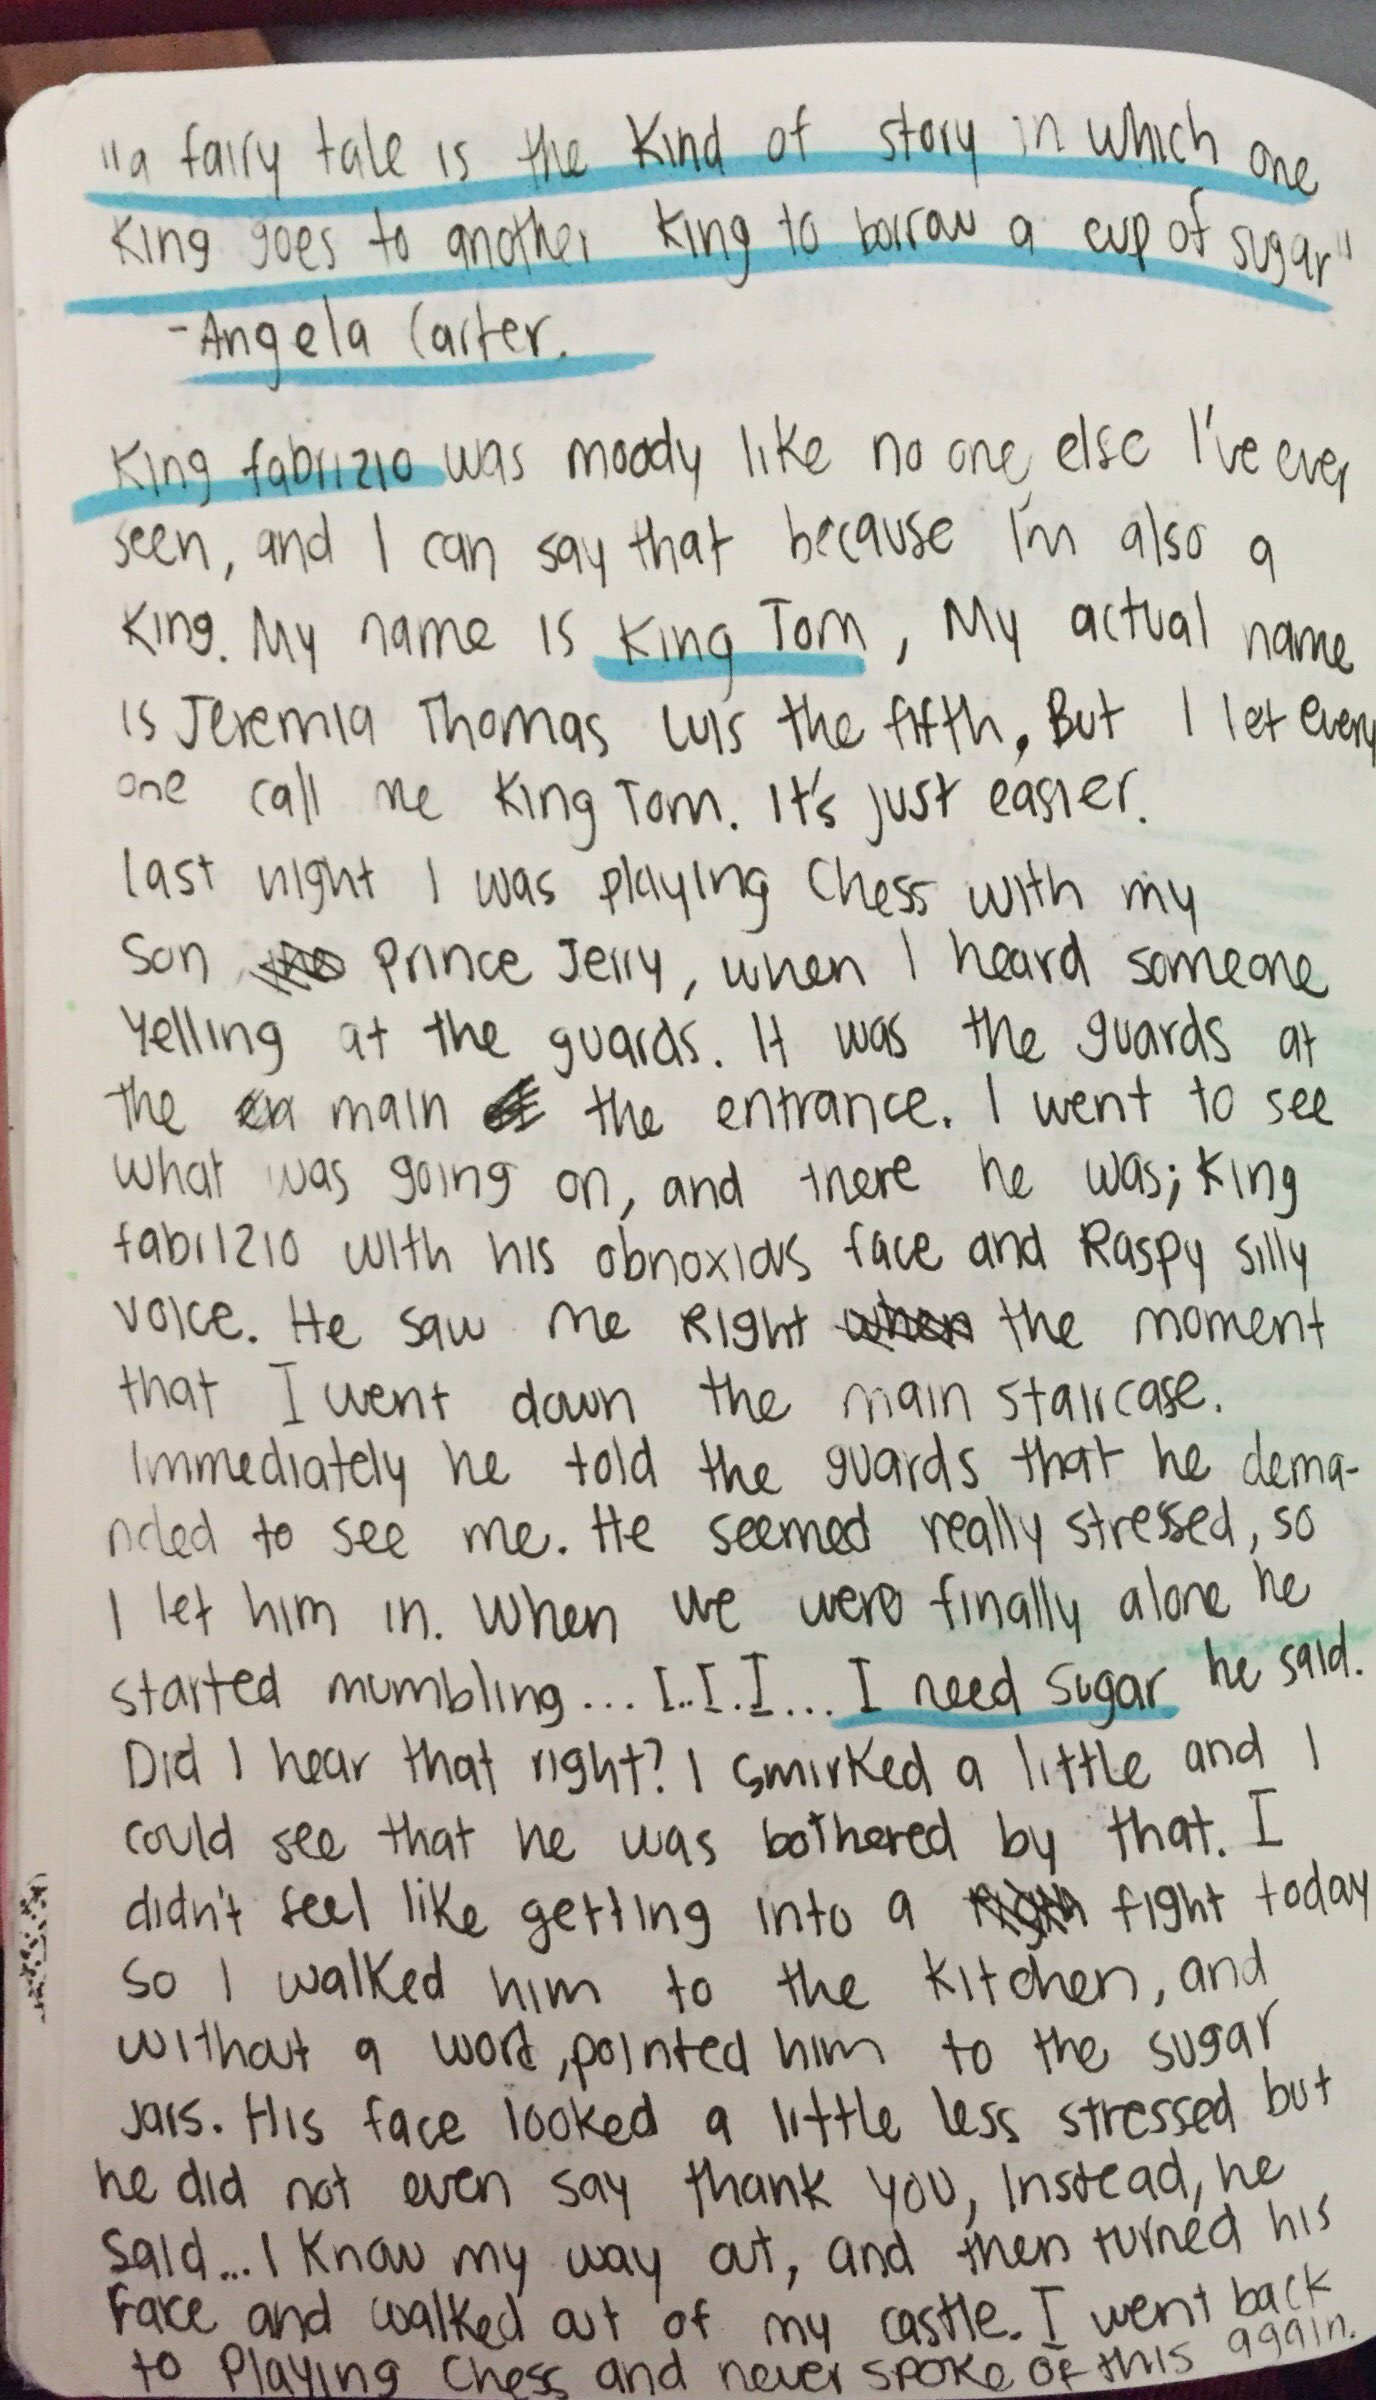 "a fairy tale is the kind of story in which one
King goes to another king to borrow a cup of sugar"
-Angela Carter.
King fabrizio was moody like no one else I've ever
seen, and I can say that because I'm also a
King. My name is King Tom, My actual name
is Jeremia Thomas Luis the fifth, But I let every
one call me King Tom. It's just easier.
last night I was playing Chess with my
Son Prince Jerry, when I heard someone
Yelling at the guards. It was the guards at
the main the entrance. I went to see
what was going on, and there he was; King
fabrizio with his obnoxious face and Raspy silly
voice. He saw me Right when the moment
that I went down the main staircase.
Immediately he told the guards that he dema-
nded to see me. He seemed really stressed, so
I let him in. When we were finally alone he
started mumbling... I..I.I... I need Sugar he said.
Did I hear that right? I smirked a little and I
could see that he was bothered by that. I
didn't feel like getting into a right fight today
So I walked him to the kitchen, and
without a word, pointed him to the sugar
Jars. His face looked a little less stressed but
he did not even say thank you, Instead, he
Said... I Know my way out, and then turned his
Face and walked out of my castle. I went back
to Playing Chess and never spoke of this again.